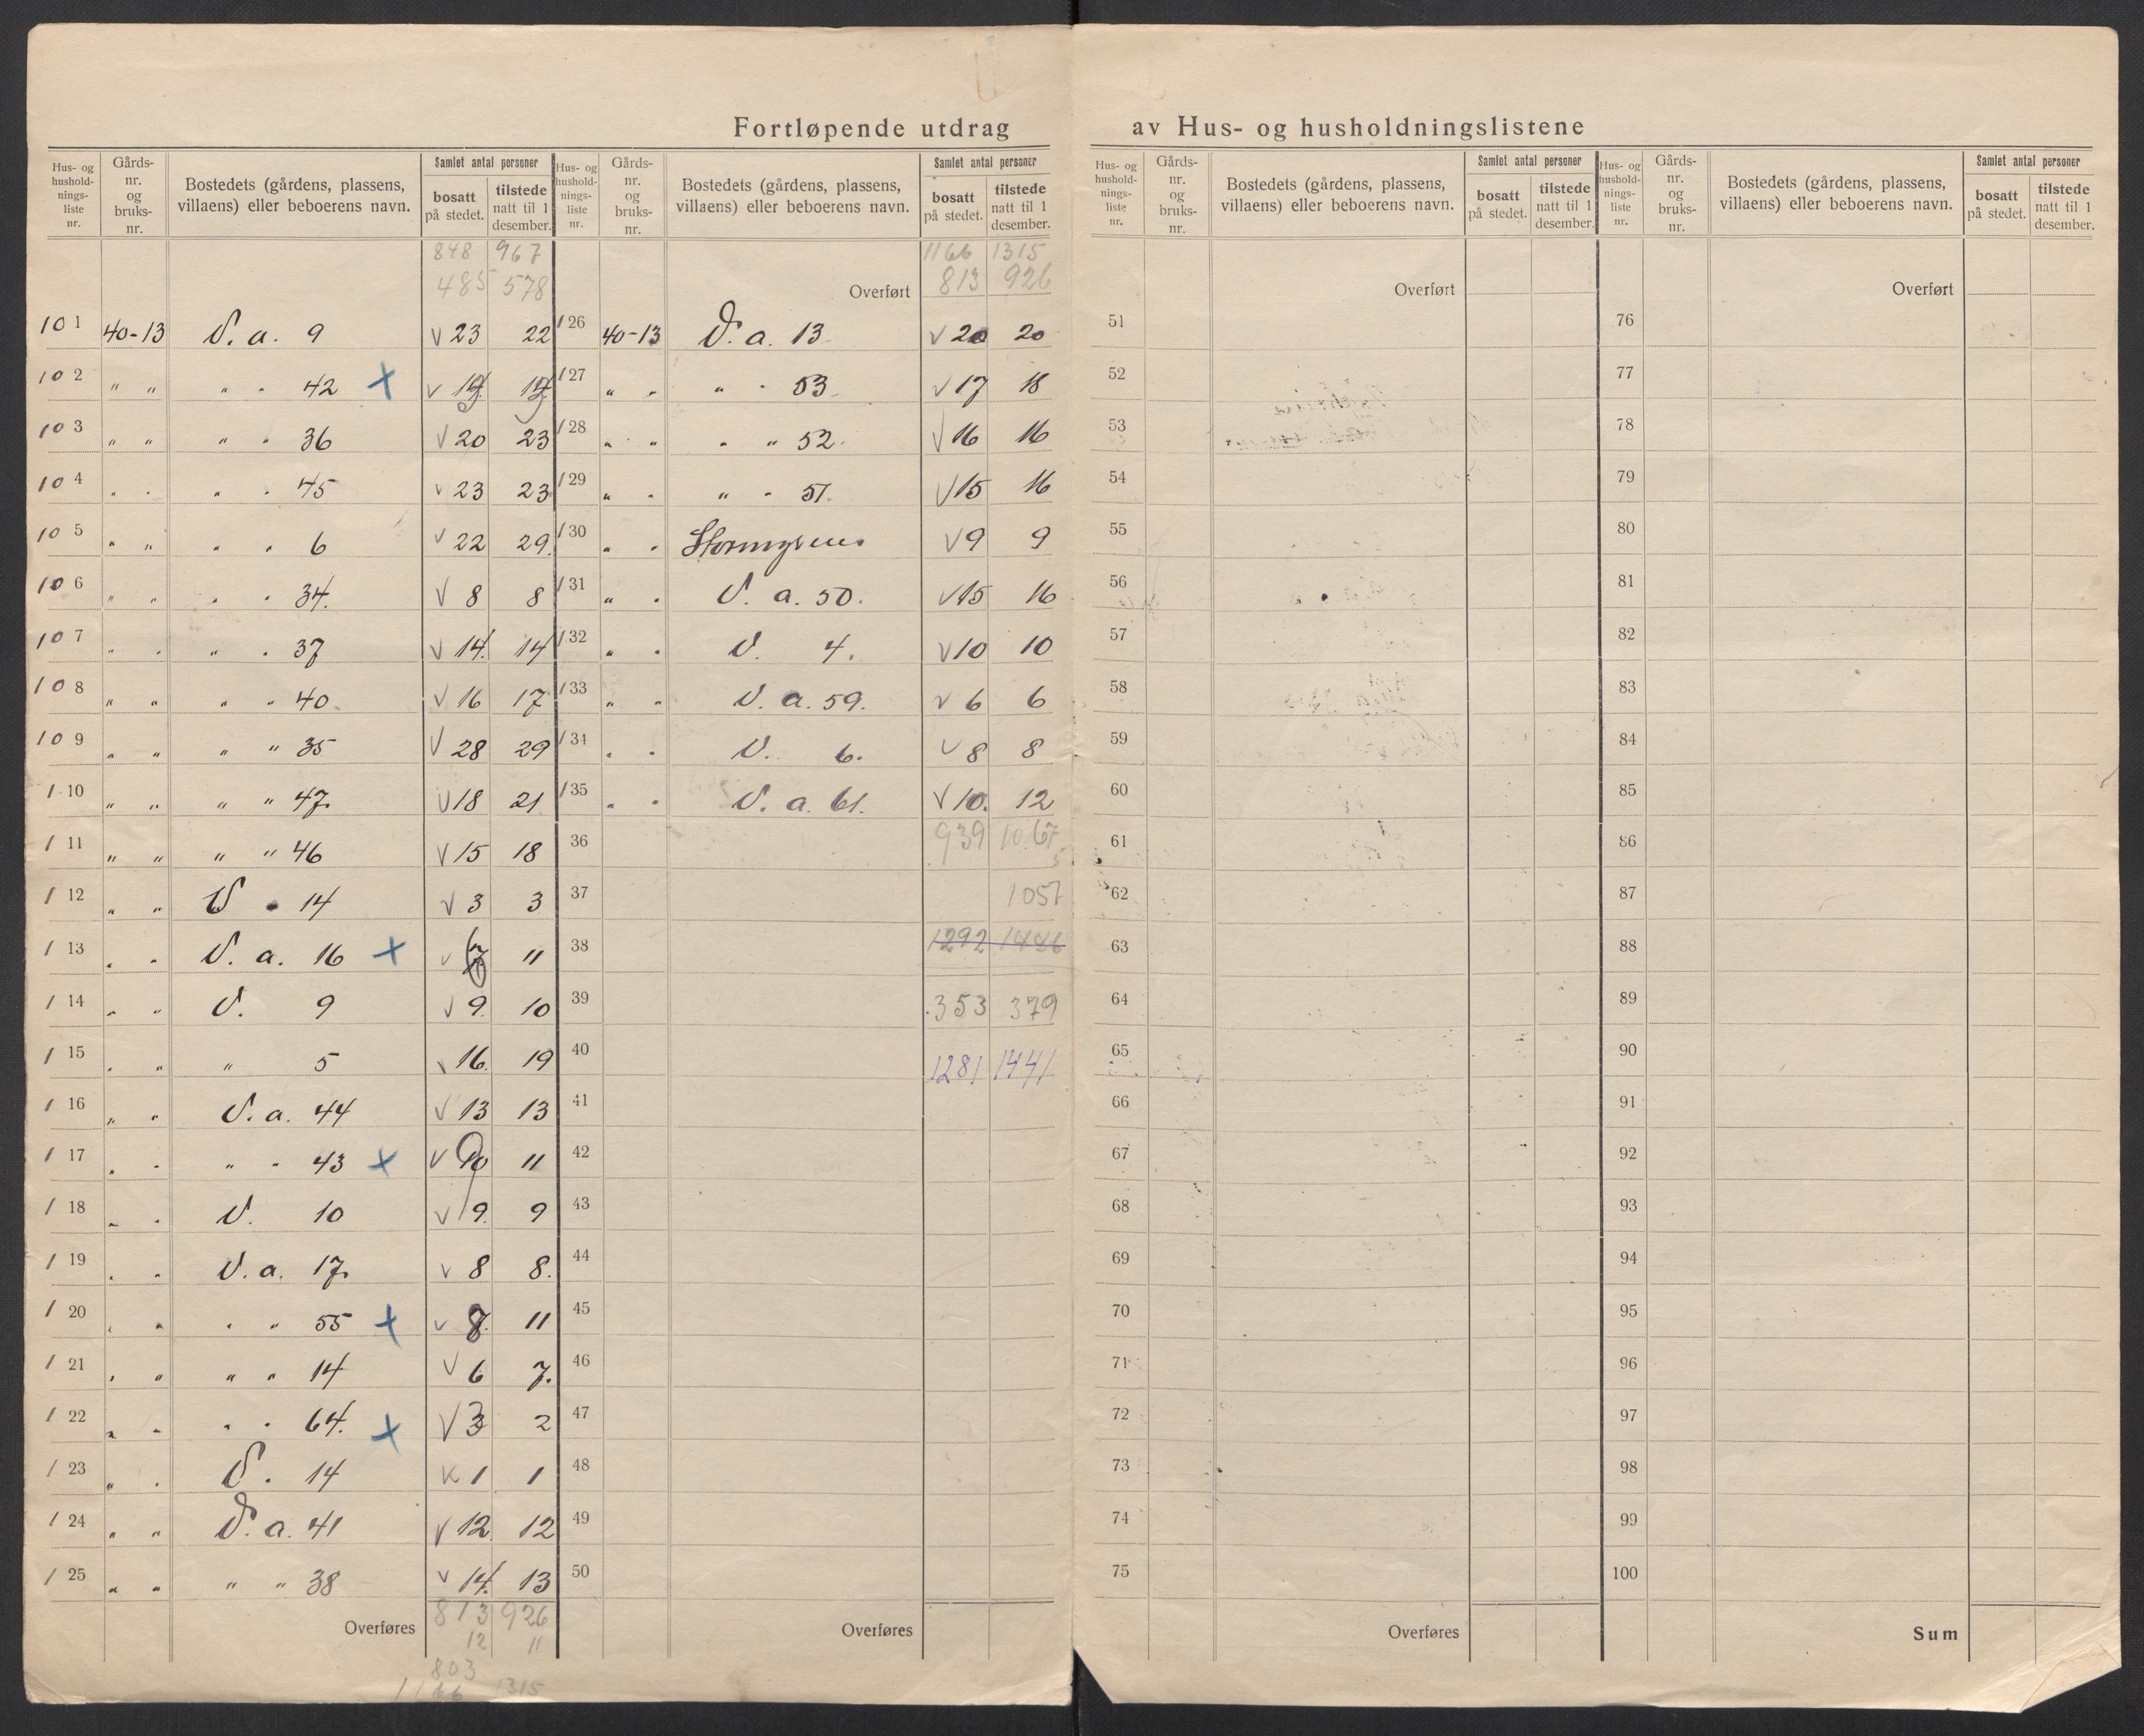 Fortløpende utdrag av Hus- og husholdningslistene
Hus- og hushold- nings- liste nr. Gårds- nr. og bruks- nr. Bostedets (gårdens, plassens, villaens) eller beboerens navn. Samlet antal personer bosatt på stedet. tilstede natt til 1 desember.
848 967
485 578
101 40-13 V. a. 9 V 23 22
102 " " " " 42 + V
103 " " " " 36 V 20 23
104 " " " " 45 V 23 23
105 " " " " 6 V 22 29.
106 " " " " 34. V 8 8
107 " " " " 37 V 14. 14
108 " " " " 40 V 16 17
109 " " " " 35 V 28 29
110 " " " " 47. V 18 21
111 " " " " 46 V 15 18
112 " " V " 14 V 3 3
113 " " V. a. 16 + V 11
114 " " V. 9 V 9. 10
115 " " " 5 V 16. 19
116 " " V. a. 44 V 13 13
117 " " " " 43 + V 11
118 " " V. 10 V 9. 9
119 " " V. a. 17. V 8 8.
120 " " " " 55 + V 11
121 " " " " 14 V 6 7.
122 " " " " 64. + V 3 2
123 " " V. 14 V 1 1
124 " " V. a. 41 V 12 12
125 " " " " 38 V 14. 13
Overføres 813 926
12 11
803
1166 1315
Hus- og hushold- nings- liste nr. Gårds- nr. og bruks- nr. Bostedets (gårdens, plassens, villaens) eller beboerens navn. Samlet antal personer bosatt på stedet. tilstede natt til 1 desember.
1166 1315
Overført 813 926
126 40-13 V. a. 13. V 20 20
127 " " " " 53. V 17 18
128 " " " " 52. V 16 16
129 " " " " 51. V 15 16
130 " " V 9 9
131 " " V. a. 50. V 15 16
132 " " V. 4. V 10 10
133 " " V. a. 59. V 6 6
134 " " V. 6. V 8 8
135 " " V. a. 61. V 10. 12
36 939 1067
37 1057
38 1292 1446
39 353 379
40 1281 1441
41
42
43
44
45
46
47
48
49
50
Overføres
Hus- og hushold- nings- liste nr. Gårds- nr. og bruks- nr. Bostedets (gårdens, plassens, villaens) eller beboerens navn. Samlet antal personer bosatt på stedet. tilstede natt til 1 desember.
Overført
51
52
53
54
55
56
57
58
59
60
61
62
63
64
65
66
67
68
69
70
71
72
73
74
75
Overføres
Hus- og hushold- nings- liste nr. Gårds- nr. og bruks- nr. Bostedets (gårdens, plassens, villaens) eller beboerens navn. Samlet antal personer bosatt på stedet. tilstede natt til 1 desember.
Overført
76
77
78
79
80
81
82
83
84
85
86
87
88
89
90
91
92
93
94
95
96
97
98
99
100
Sum